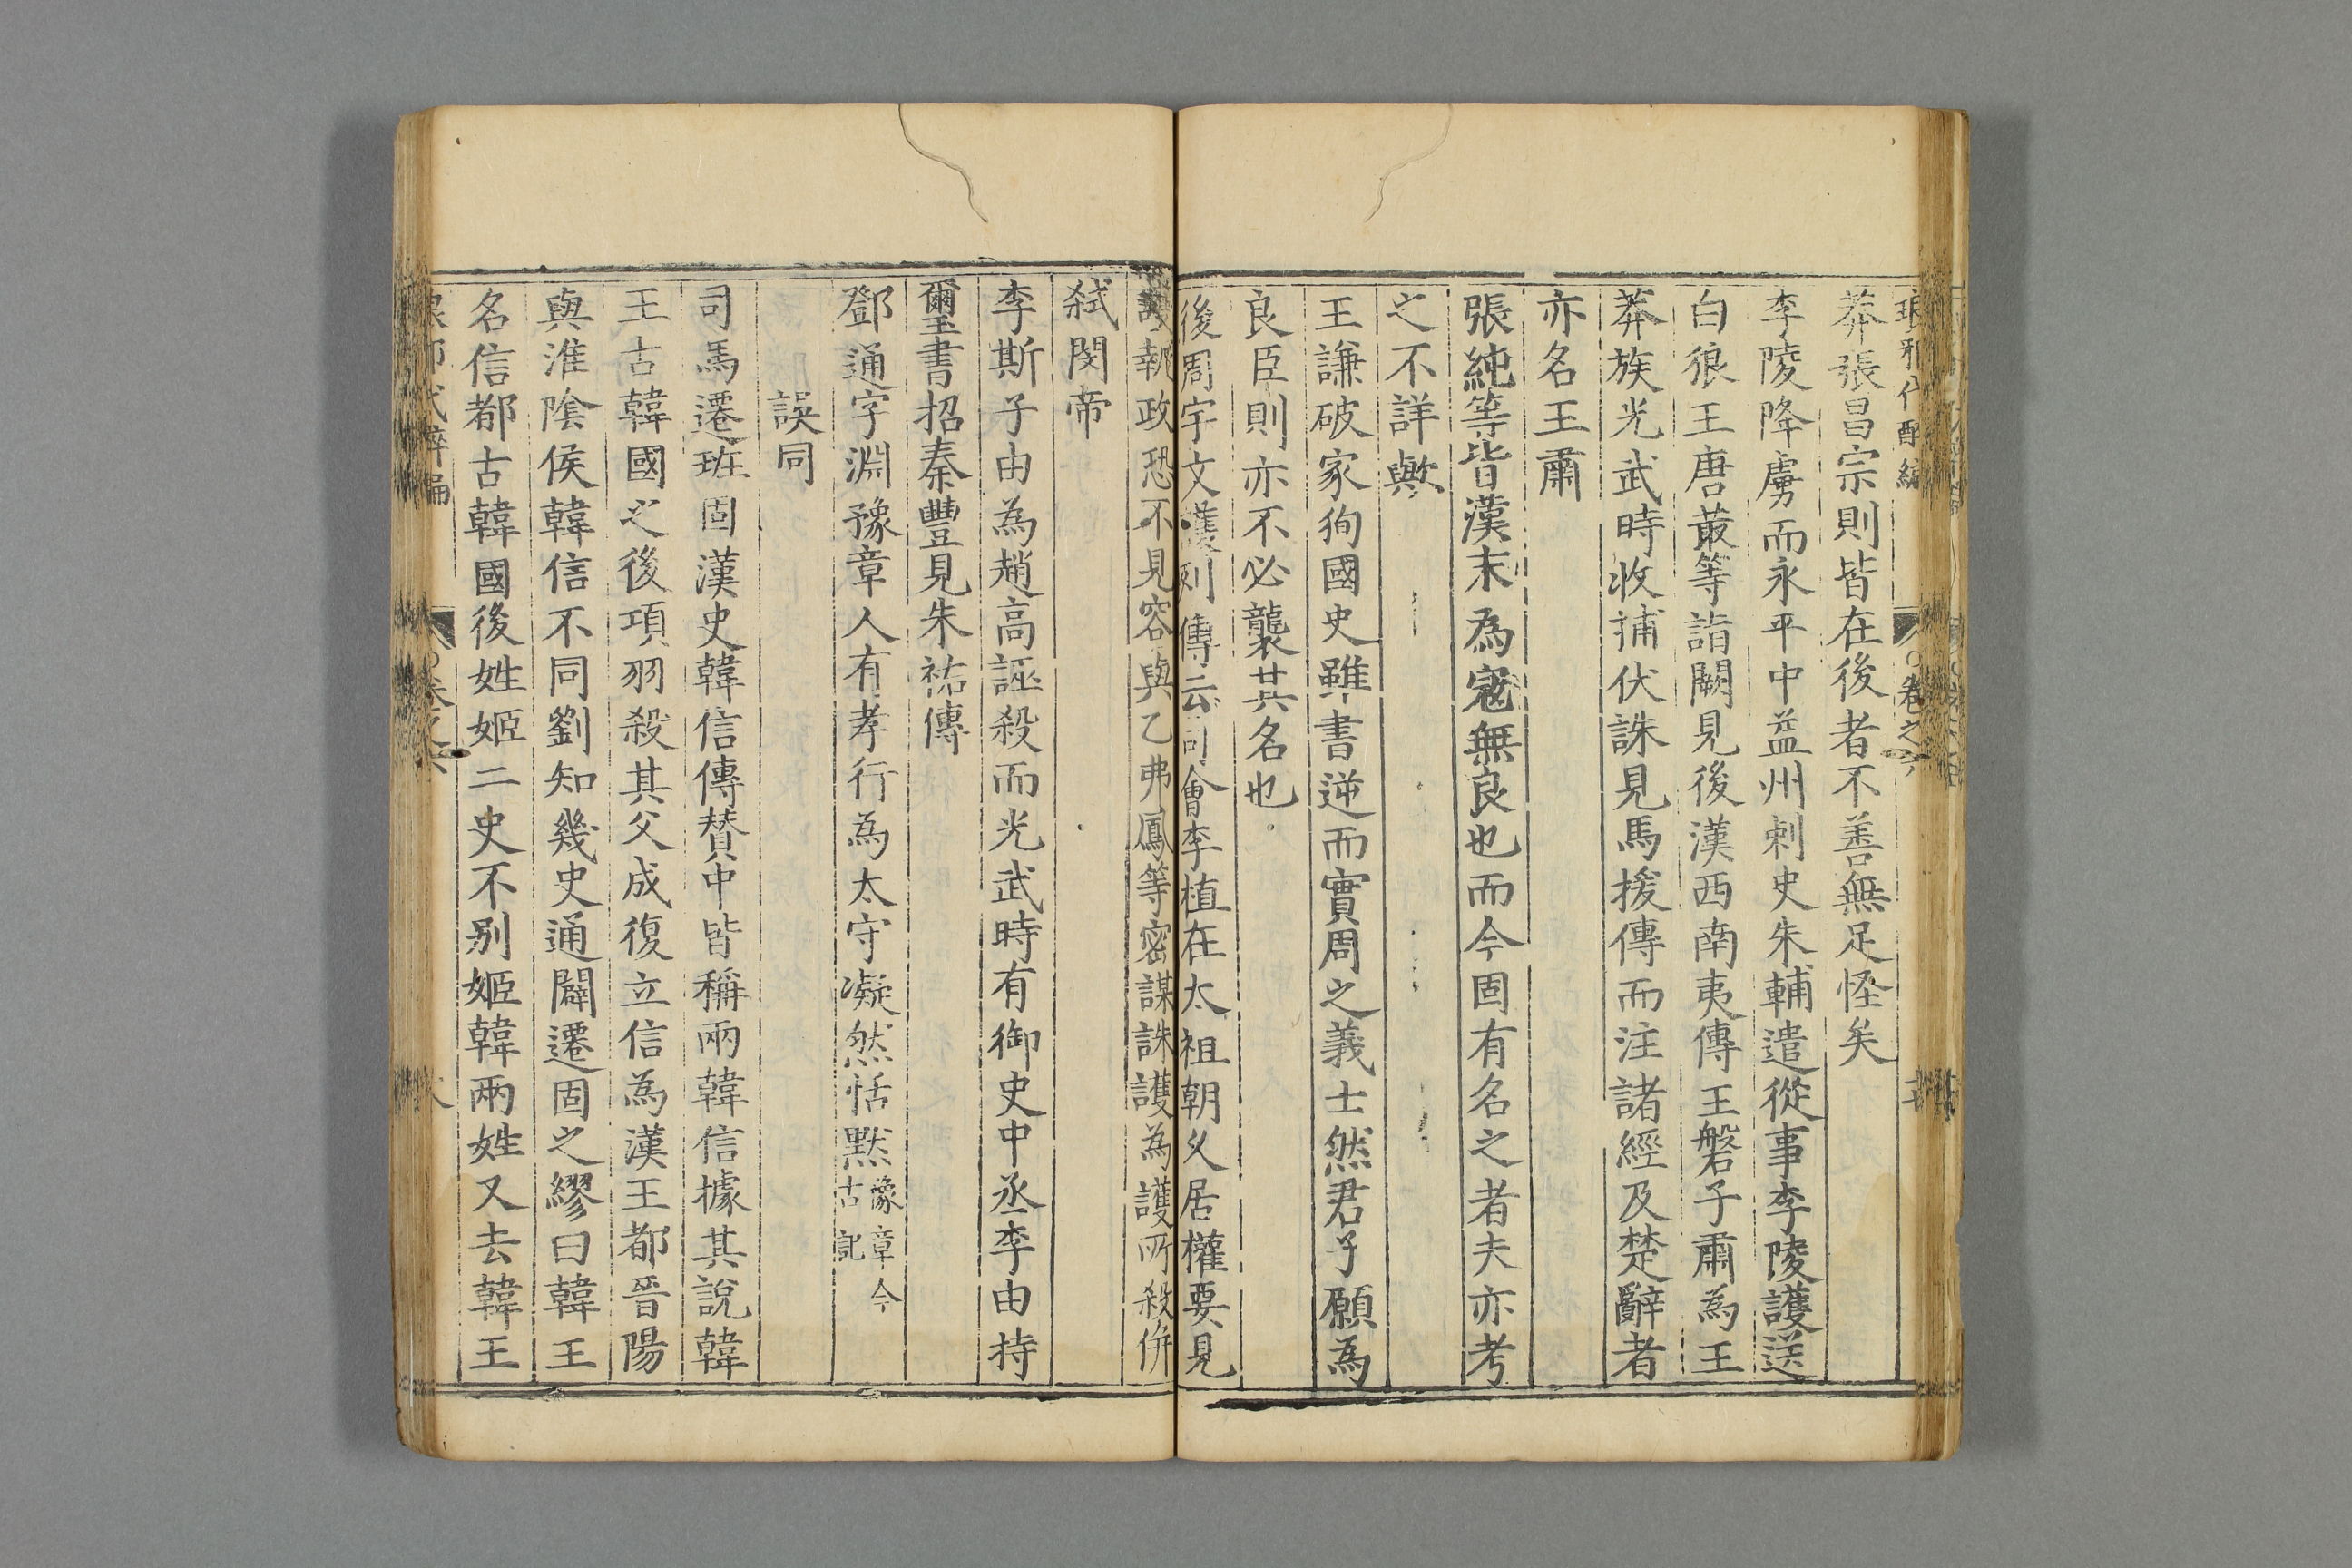 琅邪代醉編 卷之六
莽張昌宗則皆在後者不善無足怪矣
李陵降虜而永平中益州刺史朱輔遣從事李陵護送
白狼王唐菆等詣闕見後漢西南夷傳王磐子肅為王
莽族光武時收捕伏誅見馬援傳而注諸經及楚辭者
亦名王肅
張純等皆漢末為寇無良也而今固有名之者夫亦考
之不詳歟
王謙破家狥國史雖書逆而實周之義士然君子願為
良臣則亦不必襲其名也
後周宇文護列傳云司會李植在太祖朝久居權要見
護執政恐不見容與乙弗鳳等密謀誅護為護所殺併
弒閔帝
李斯子由為趙高誣殺而光武時有御史中丞李由持
璽書招秦豐見朱祐傳
鄧通字淵豫章人有孝行為太守凝然恬默豫章今古記
誤同
司馬遷班固漢史韓信傳賛中皆稱兩韓信據其說韓
王古韓國之後項羽殺其父成復立信為漢王都晉陽
與淮陰侯韓信不同劉知幾史通闢遷固之繆曰韓王
名信都古韓國後姓姬二史不別姬韓兩姓又去韓王
卷之六